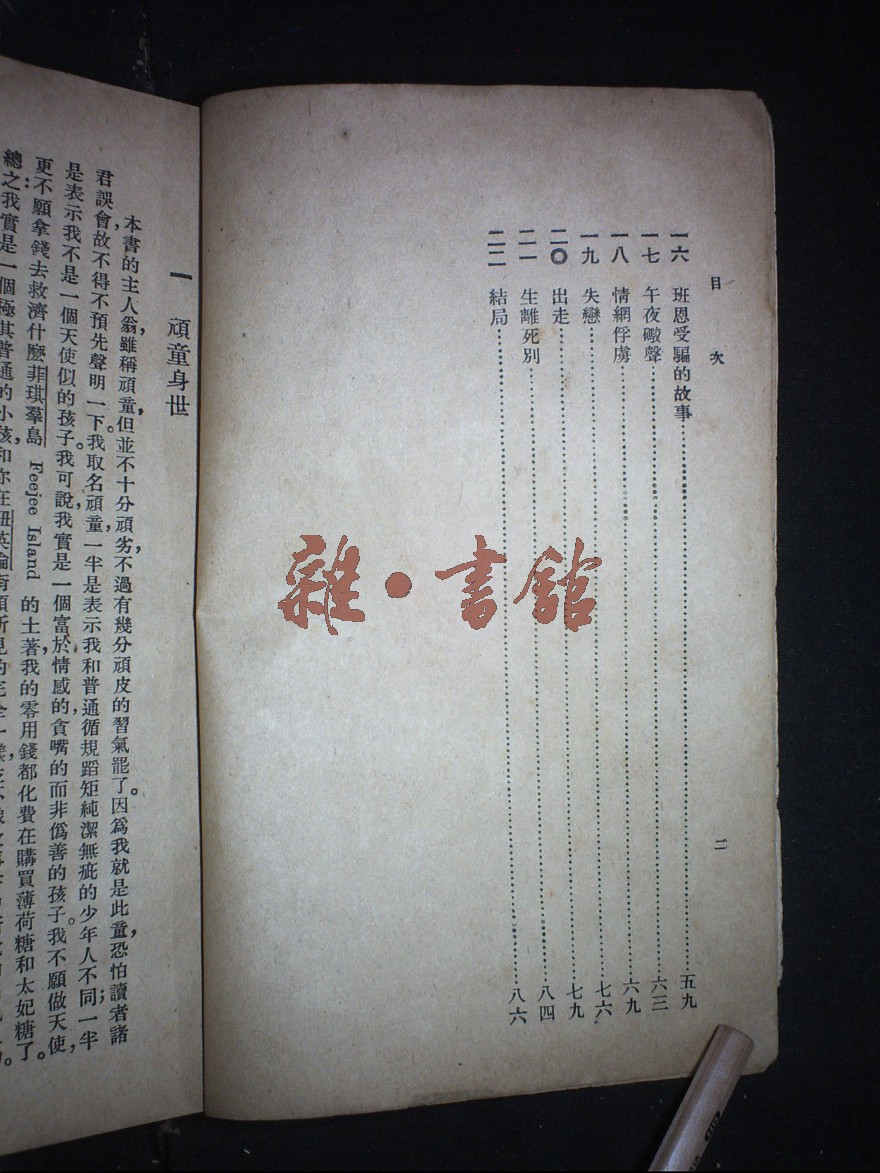 目次
一六 班恩受騙的故事 五九
一七 午夜礮聲 六三
一八 情網俘虜 六九
一九 失戀 七六
二〇 出走 七九
二一 生離死別 八四
二二 結局 八六
二
雜·書館
一 頑童身世
本書的主人翁，雖稱頑童，但並不十分頑劣，不過有幾分頑皮的習氣罷了。因爲我就是此童，恐怕讀者諸
君誤會，故不得不預先聲明一下。我取名頑童，一半是表示我和普通循規蹈矩純潔無疵的少年人不同；一半
是表示我不是一個天使似的孩子。我可說，我實是一個富於情感的，貪嘴的，而非僞善的孩子。我不願做天使，
更不願拿錢去救濟什麽菲琪羣島 Feejee Island 的土著，我的零用錢都化費在購買薄荷糖和太妃糖了。
總之，我實是一個極其普通的小孩，和你在紐英倫